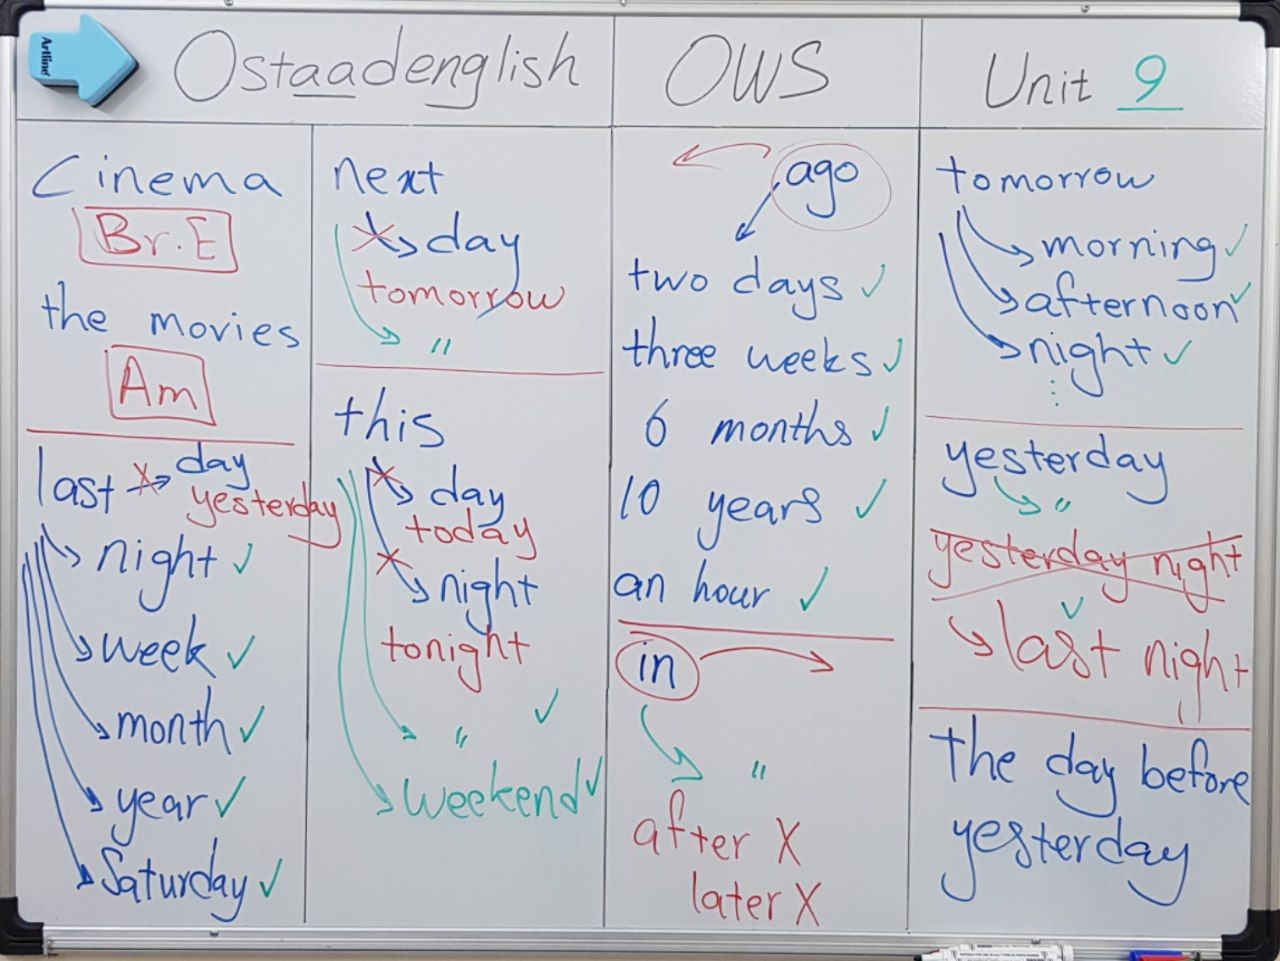 Artline
Ostaadenglish
OWS
Unit 9
Cinema
Br.E
the movies
Am
last X day
yesterday
night ✓
week ✓
month ✓
year ✓
Saturday ✓
next
X day
tomorrow
"
this
X day
today
X night
tonight
" ✓
weekend ✓
ago
two days ✓
three weeks ✓
6 months ✓
10 years ✓
an hour ✓
in
"
after X
later X
tomorrow
morning ✓
afternoon ✓
night ✓
yesterday
"
yesterday night
last night
the day before
yesterday